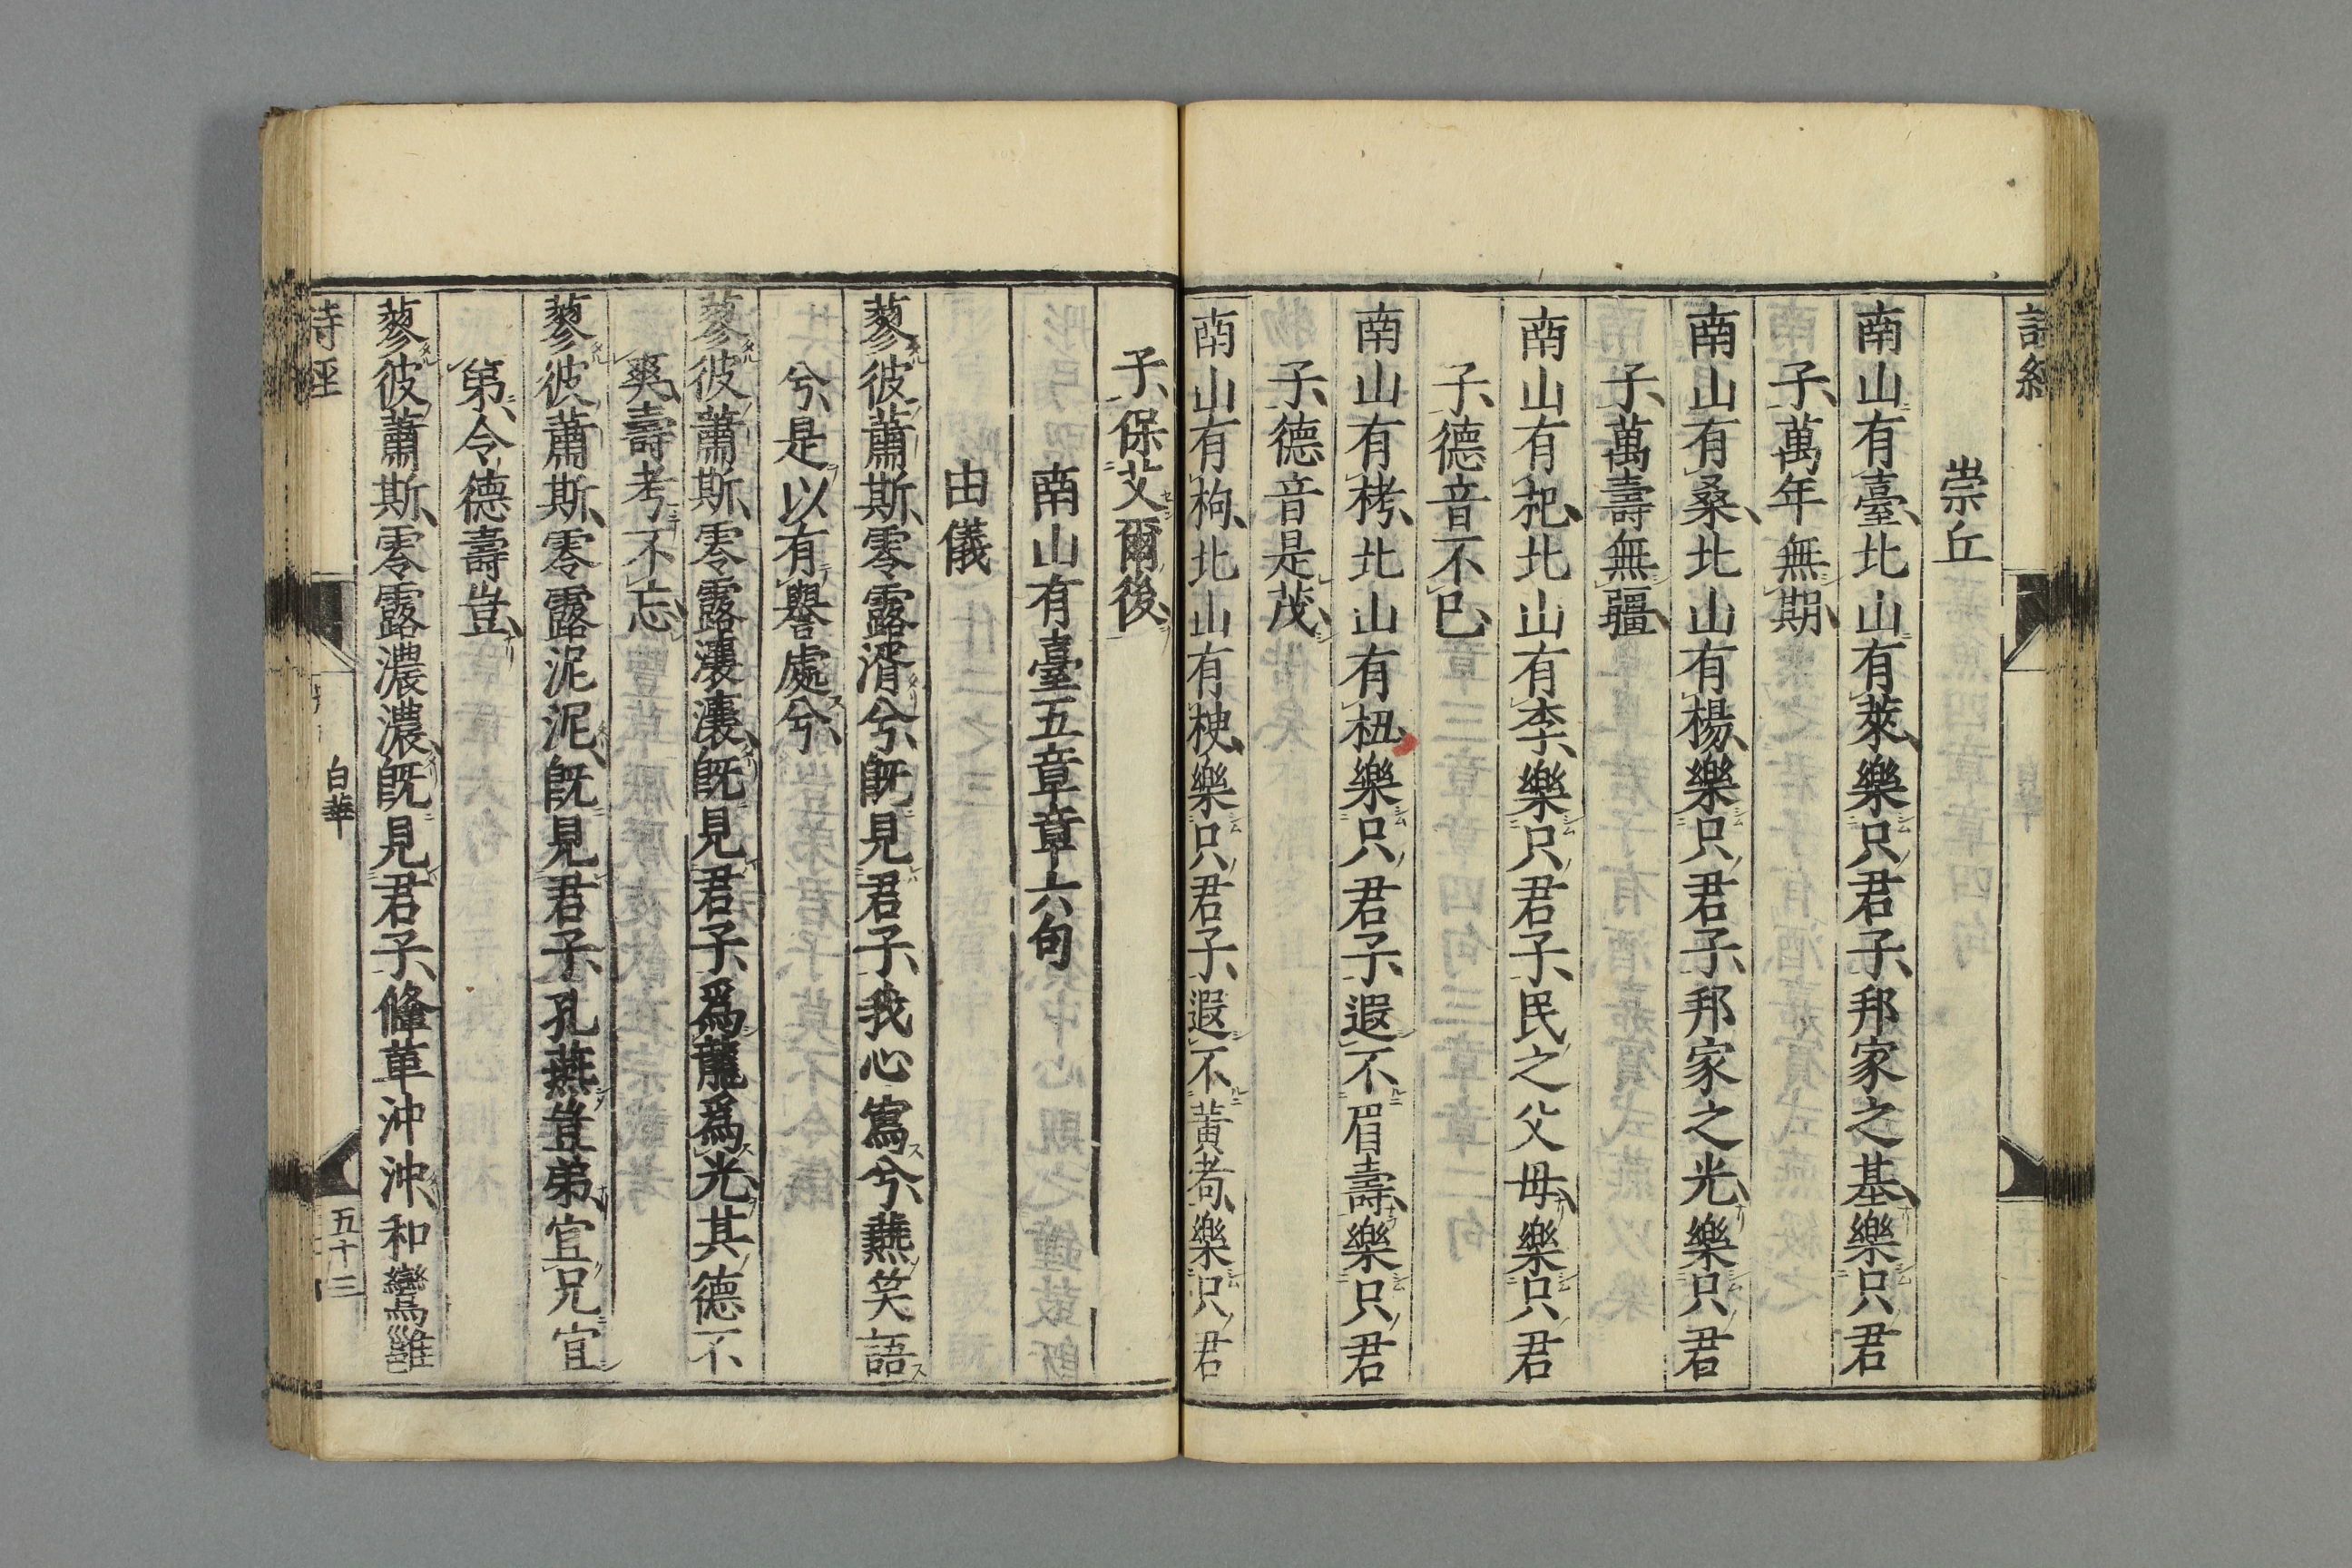 詩經
崇丘
南山有臺北山有萊樂只君子邦家之基樂只君
子萬年無期
南山有桑北山有楊樂只君子邦家之光樂只君
子萬壽無疆
南山有杞北山有李樂只君子民之父母樂只君
子德音不已
南山有栲北山有杻樂只君子遐不眉壽樂只君
子德音是茂
南山有枸北山有楰樂只君子遐不黃耇樂只君
子保艾爾後
南山有臺五章章六句
由儀
蓼彼蕭斯零露湑兮旣見君子我心寫兮燕笑語
兮是以有譽處兮
蓼彼蕭斯零露瀼瀼旣見君子爲龍爲光其德不
爽壽考不忘
蓼彼蕭斯零露泥泥旣見君子孔燕豈弟宜兄宜
弟令德壽豈
蓼彼蕭斯零露濃濃旣見君子鞗革沖沖和鸞雝
詩經
白華
五十三